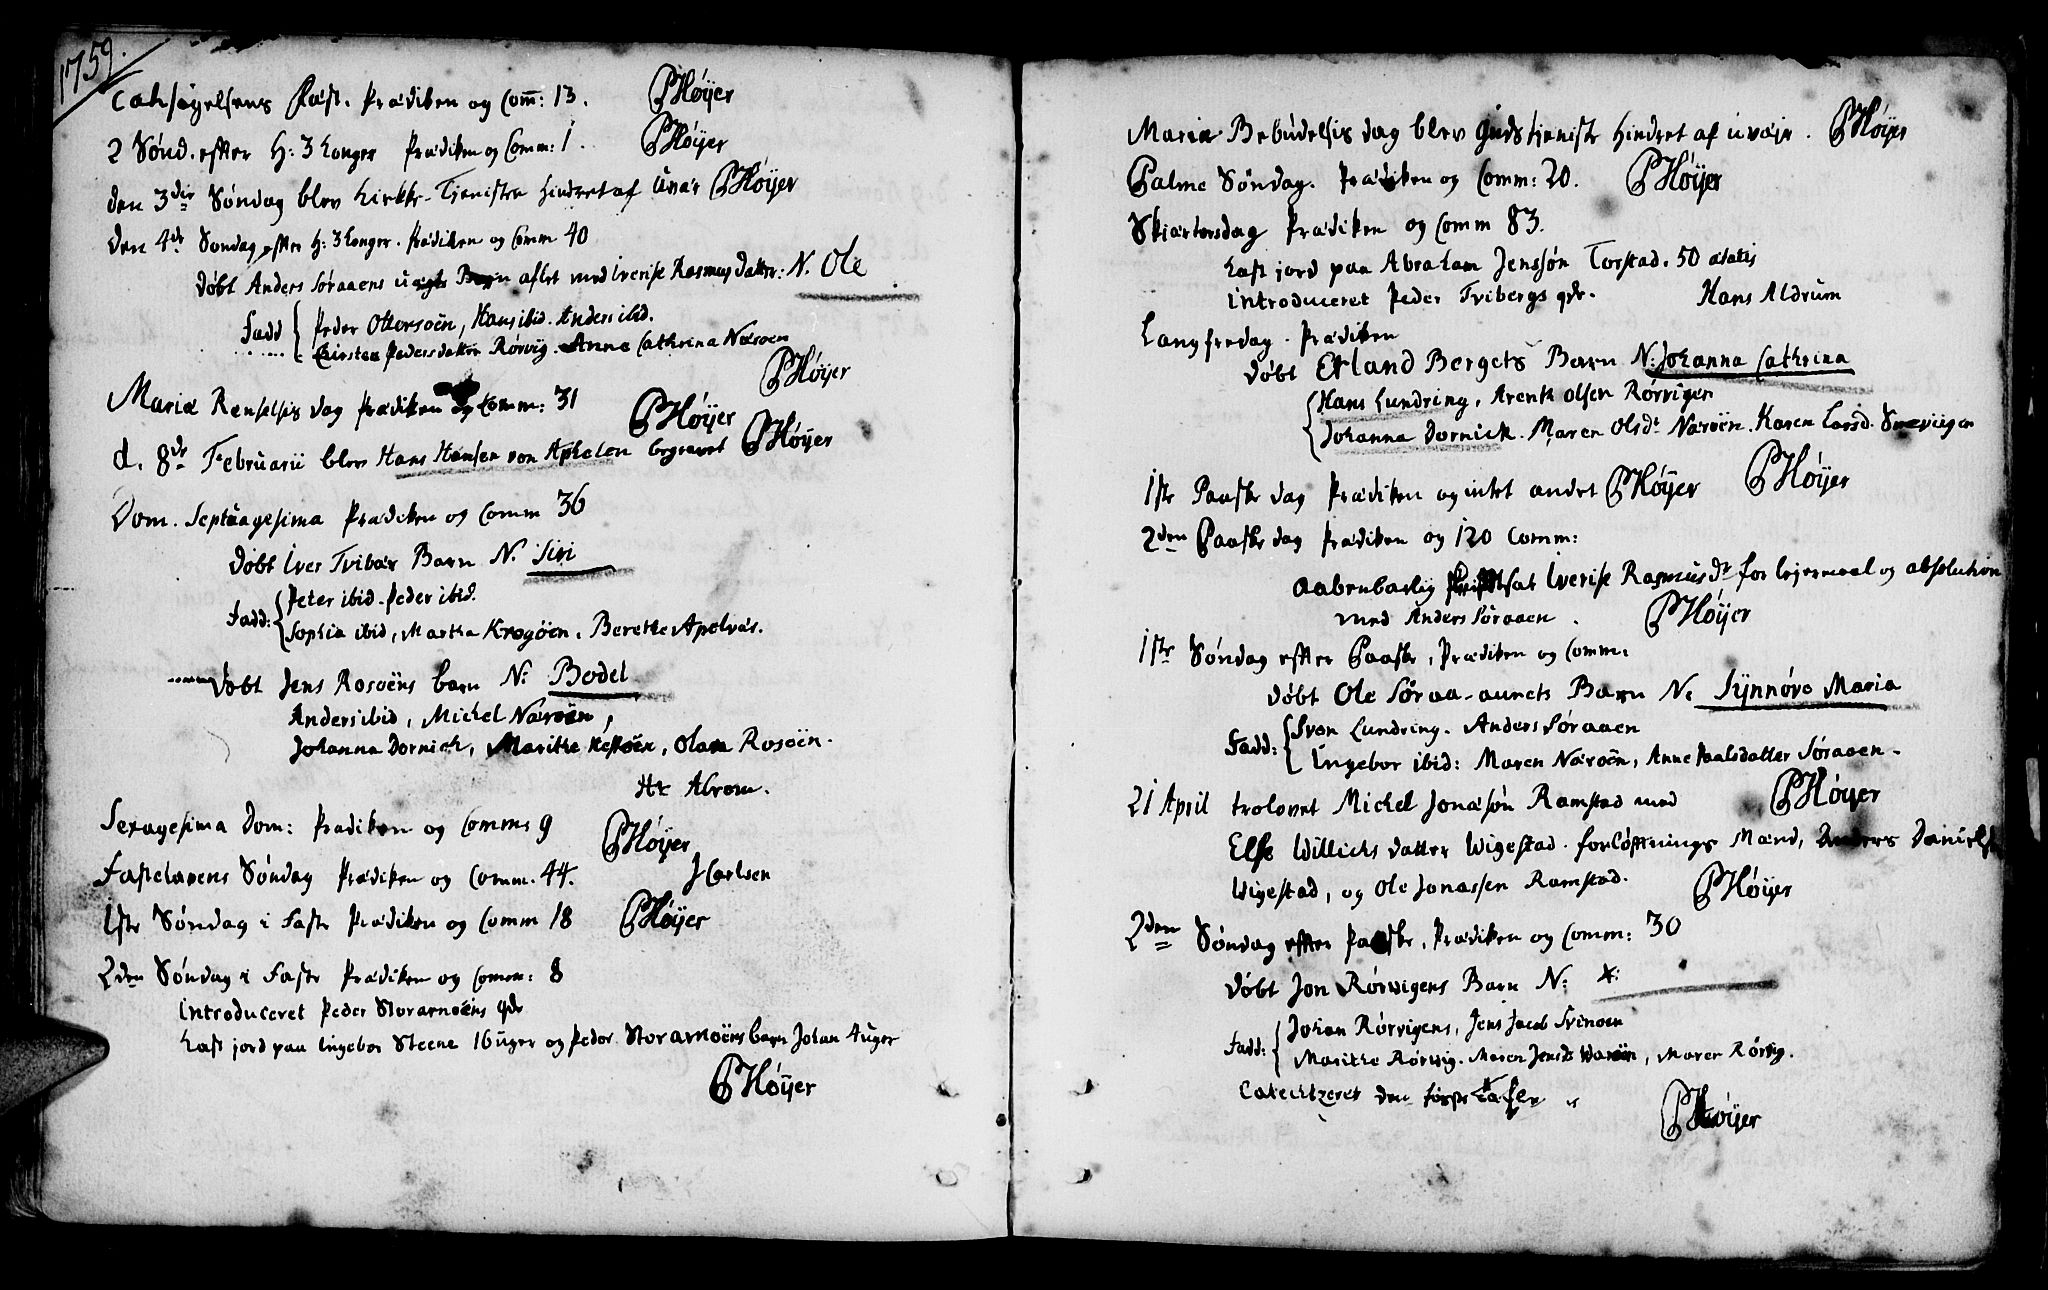 1759.
Fest. Prædiken og Com̄: 13. PHøÿer
2 Sønd. efter H: 3 Konger Prædiken og Comm: 1. PHøÿer
den 3die Søndag blev Kirke-Tjenisten hindret af Uvær PHøÿer
den 4de Søndag efter H: 3 Konger. Prædiken og Comm 40
døbt Anders Søraaens uægte Barn aflet med Iverise Rasmus datter: N. Ole
Fadd Peder Ottersøen, Hans ibid. Anders ibid.
Kirsten Pedersdatter Rørvig. Anna Cathrina Nærøen
PHøÿer
Mariæ Renselsis dag Prædiken og Comm: 31 PHøÿer
d. 8de Februarii blev Hans Hansen von Aphelen begravet PHøÿer
Dom. Septuagesima Prædiken og Comm 36
døbt Iver Tvibær Barn N. Siri
Fadd: Peter ibid. Peder ibid.
Sophia ibid, Martha Krogøen. Berethe Apelvær.
døbt Jens Rosøens barn N: Bodel
Anders ibid, Michel Nærøen,
Johanna Dornich, Marithe Østøen, Olava Rosøen.
Hr Alrom.
Sexagesima Dom: Prædiken og Comm: 9 PHøÿer
Fastelavens Søndag Prædiken og Comm. 44. J Carlsen
1ste Søndag i Faste Prædiken og Comm 18 PHøÿer
2den Søndag i Faste Prædiken og Comm: 8
introduceret Peder Storarnøens qde
Kast jord paa Ingebor Steene 16 uger og Peder Storarnøens barn Johan 4 uger
PHøÿer
Mariæ Bebudelsis dag blev Gudstieniste hindret af uvæir. PHøÿer
Palme Søndag. Prædiken og Comm: 20. PHøÿer
Skiærtorsdag Prædiken og Comm 83.
Kast jord paa Abraham Jenssøn Torstad. 50 ætatis
introduceret Peder Tvibergs qde. Hans Aldrum
Langfredag. Prædiken
døbt Erland Bergets Barn N: Johanna Cathrina
Hans Lundring, Arent Olsen Rørvigen
Johanna Dornick. Maren Olsdr Nærøen. Karen Larsd. Snevigen
1ste Paaske dag Prædiken og intet andet PHøÿer PHøÿer
2den Paaske dag Prædiken og 120 Comm:
aabenbarlig Iverise Rasmusdr for lejermaal og absolution
med Anders Søraaen. PHøÿer
1ste Søndag efter Paaske, Prædiken og Comm.
døbt Ole Søraa-aunets Barn N: Synnøve Maria
Fadd: Sven Lundring. Anders Søraaen
Ingebor ibid: Maren Nærøen, Anne Paalsdatter Søraaen.
21 April trolovet Michel Jonæsøn Ramstad med PHøÿer
Else Willichs datter Wigestad. forløftnings Mænd, Anders Daniels
Wigestad, og Ole Jonassen Ramstad. PHøÿer
2den Søndag efter Paaske, Prædiken og Comm: 30
døbt Jon Rørwigens Barn N:
Fadd: Johan Rørvigens, Jens Jacob Svinøen
Marithe Rørwig. Maren Jensdr Værøen, Maren Rørvig.
Catechizeret den første
PHøÿer